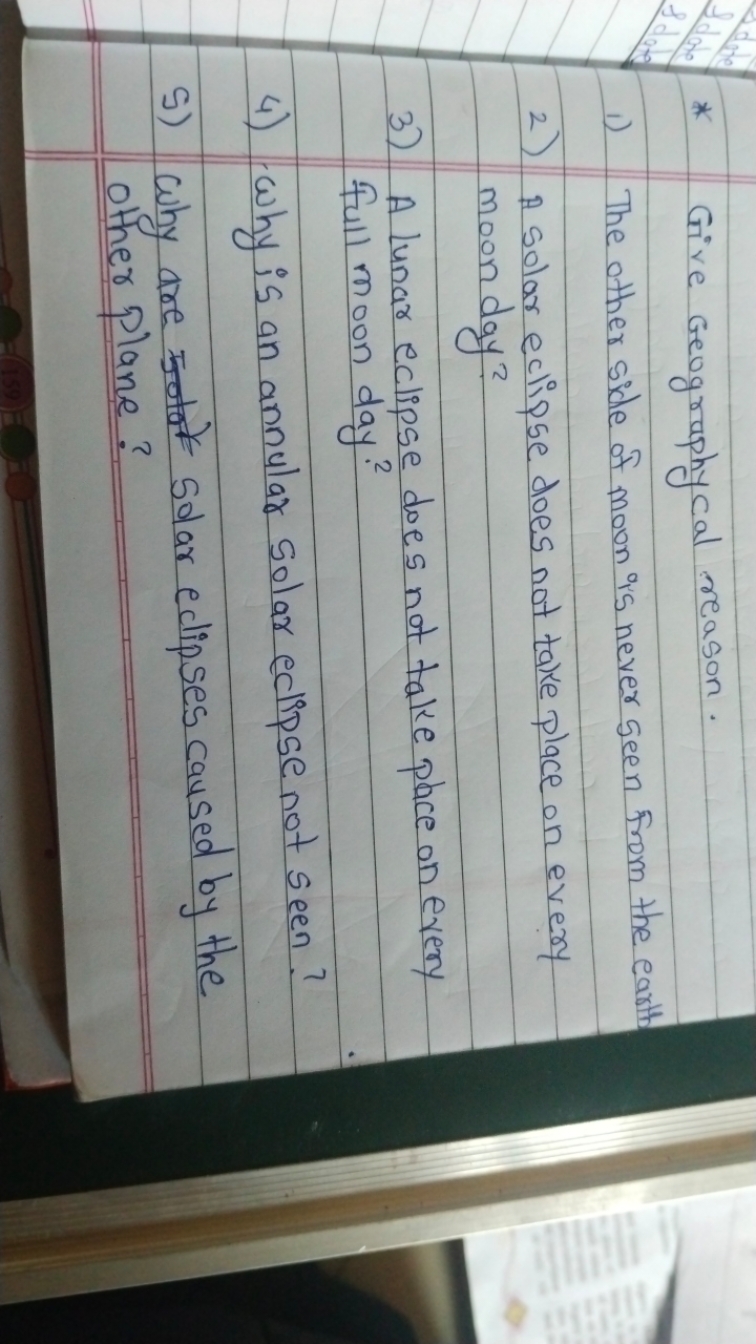 * Give Geographycal reason.
1) The other side of moon is never seen from the earth
2) A solar eclipse does not take place on every
moon day?
3) A lunar eclipse does not take place on every
full moon day?
4) why is an annular solar eclipse not seen?
5) why are solar eclipses caused by the
other plane?
159